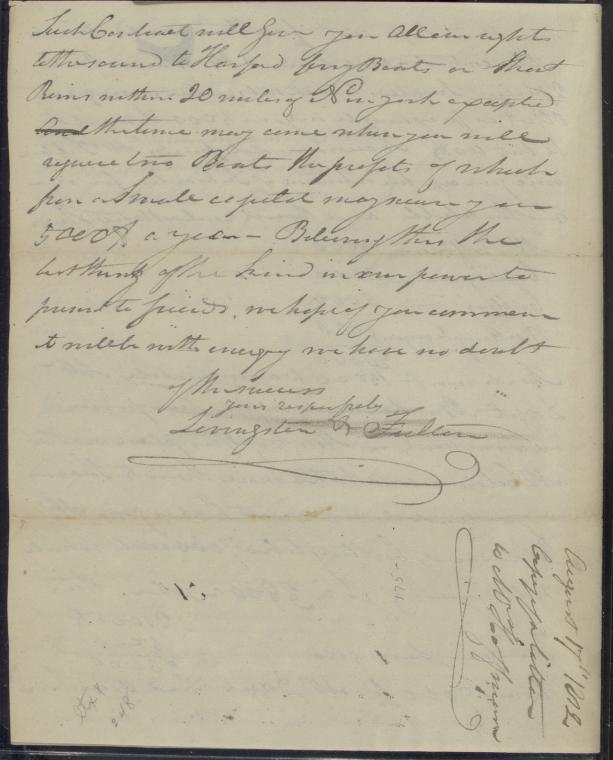 Such Contract will Give you All our rights
to the sound to Harford ferry Boats or Short
Runs within 20 miles of New york excepted
and the time may come when you will
require two Boats the profits of which
from a Small capital may secure you
5000$ a year – Believing this the
best thing of the kind in our power to
present to friends, we hope if you commence
it will be with energy we have no doubt
of the success
yours respectfully
Livingston & Fulton
August 17th 1812
Copy of a letter
to Mr
175-